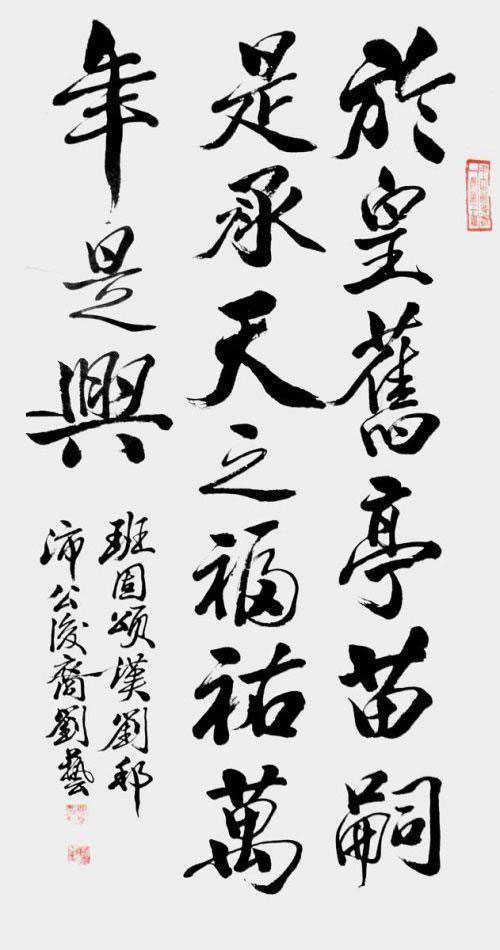 於皇舊亭苗嗣
是承天之福祐萬
年是興
班固頌漢劉邦
沛公後裔劉藝